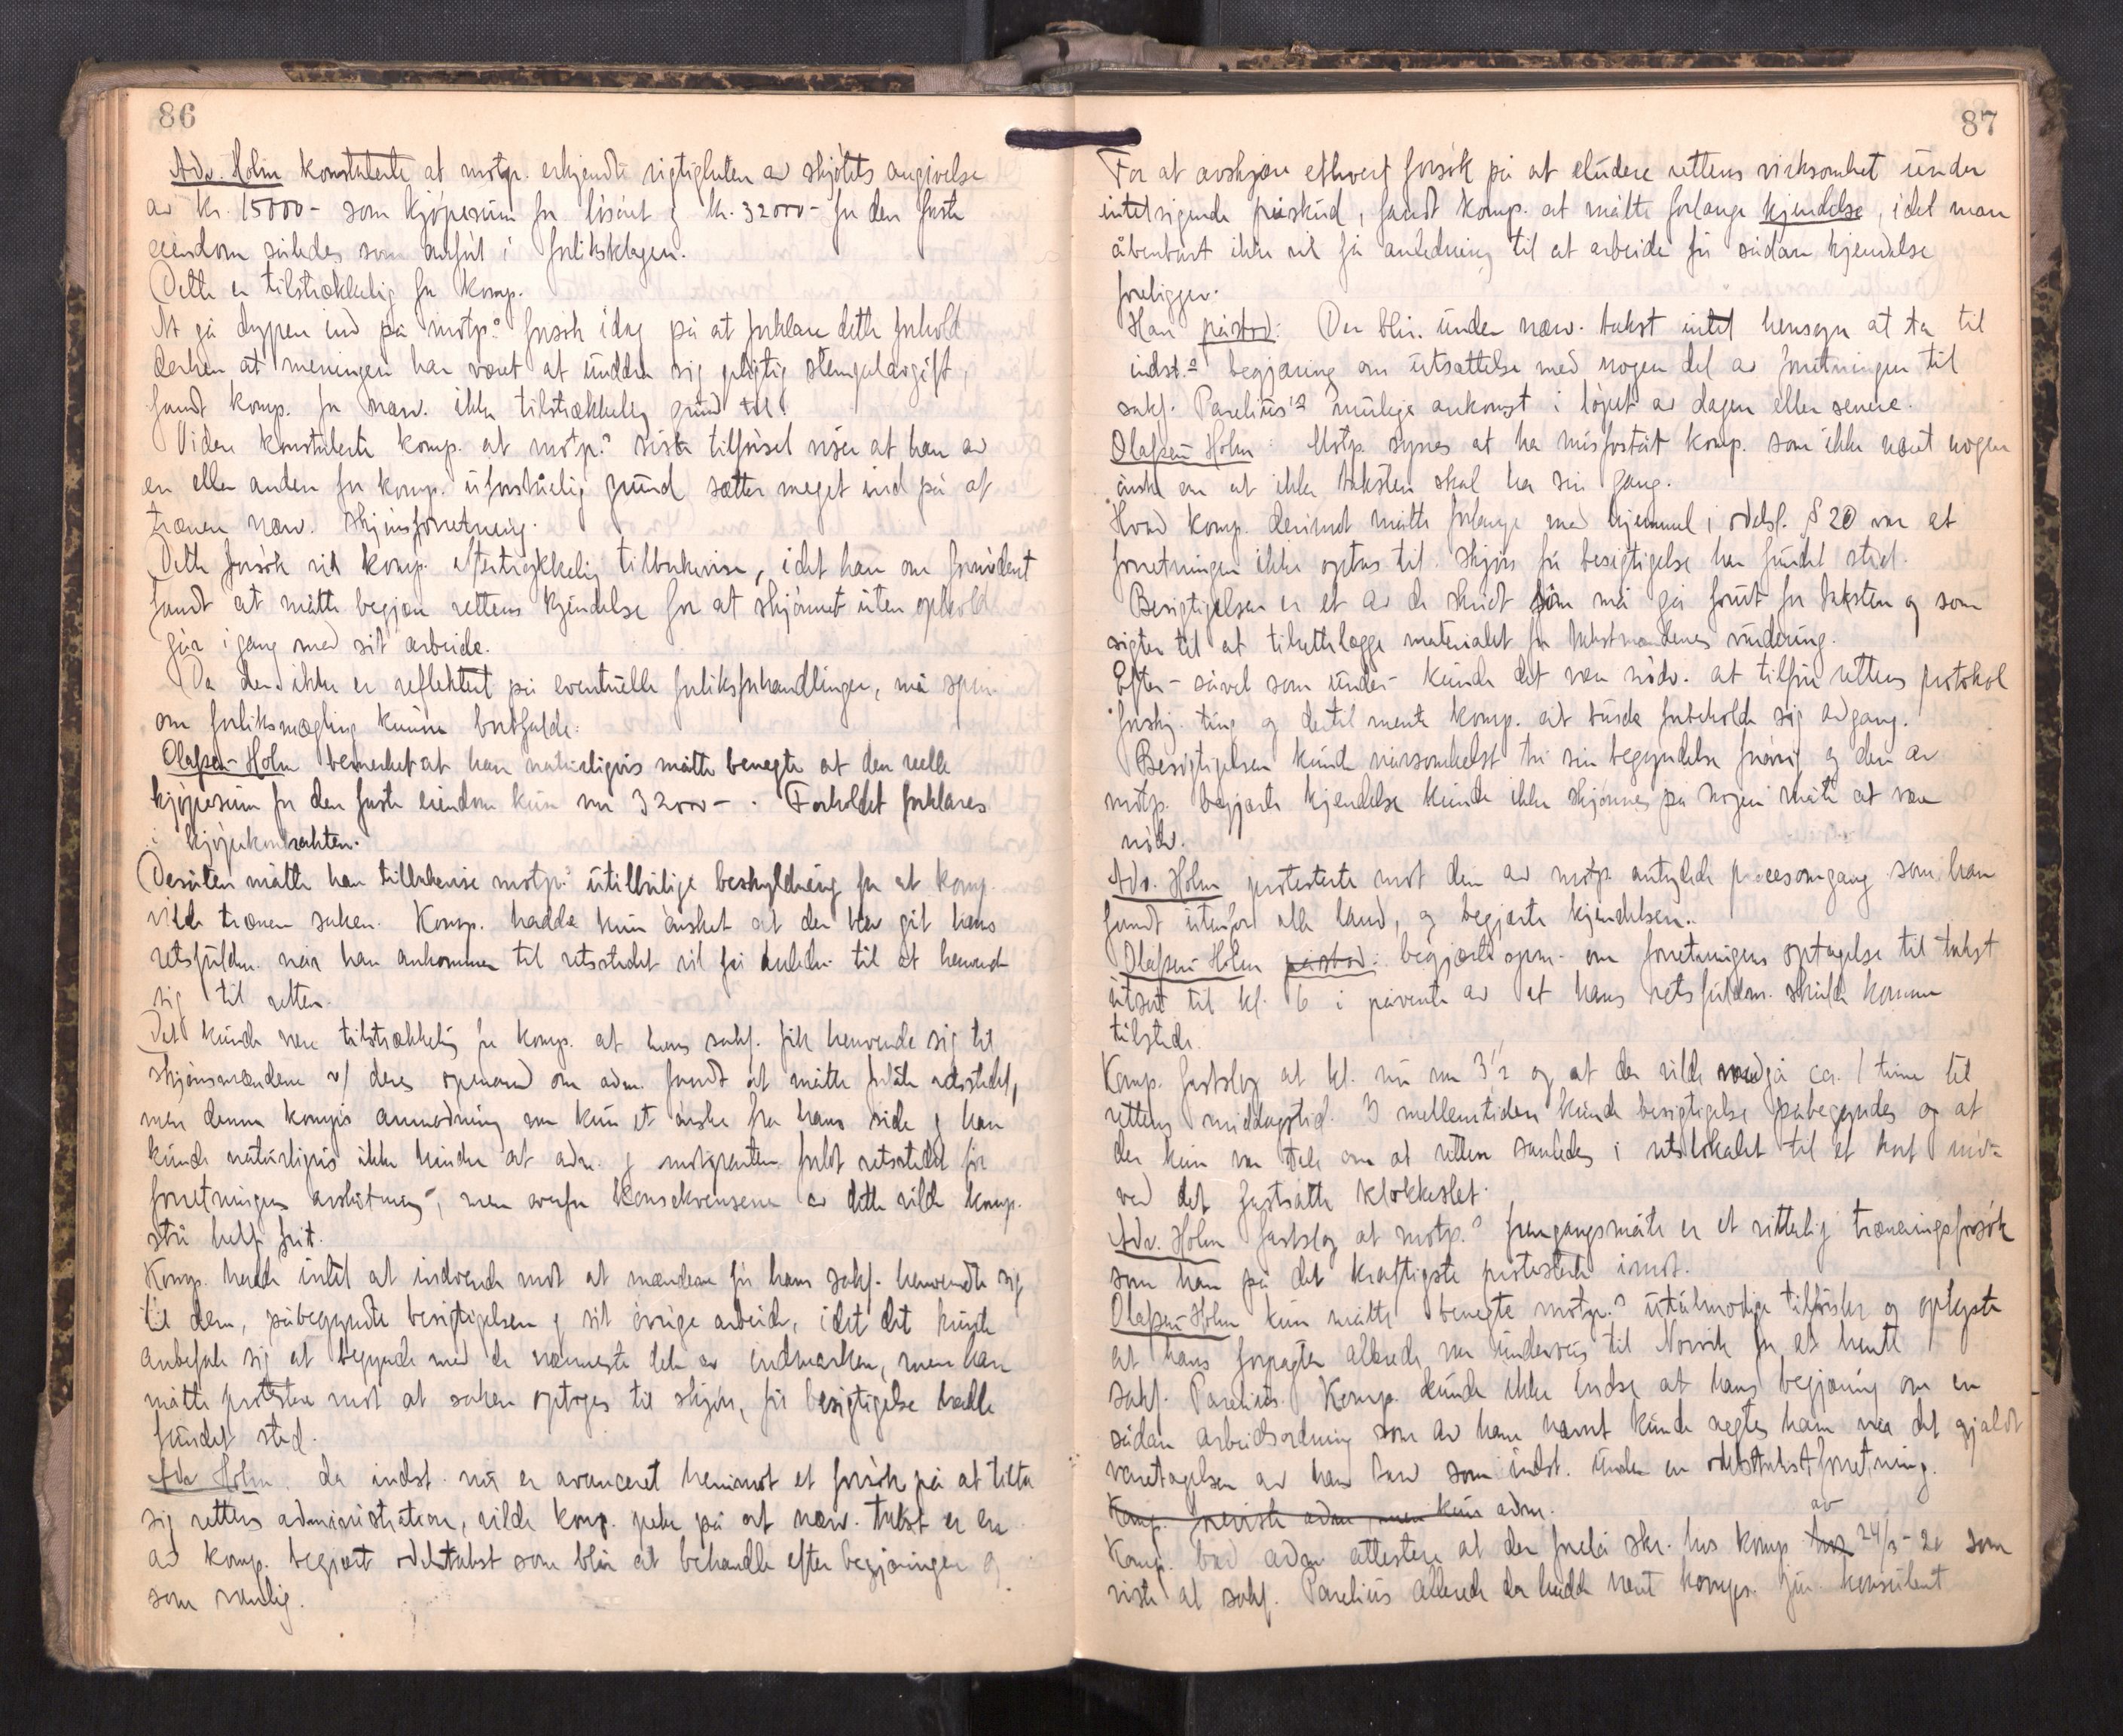 86
Adv. Holm konstaterte at motp. erkjendte rigtigheten av skjötets angivelse
av kr. 15000- som kjöpesum for lösöret og kr. 32000- for den faste
eiendom således som anfört i forliksklagen.
Dette er tilstrækkelig for komp.
At gå dypere ind på motp.s forsök idag på at forklare dette forhold
derhen at meningen har været at unddra sig pligtig stempelavgift,
fandt komp. for nærv. ikke tilstrækkelig grund til.
Videre konstaterte komp. at motp.s siste tilförsel viser at han av
en eller anden for komp. uforståelig grund sætter meget ind på at
trænere nærv. skjönsforretning.
Dette forsök vil komp. eftertrykkelig tilbakevise, idet han om fornödent
fandt at måtte begjære rettens kjendelse for at skjönnet uten ophold
går igang med sit arbeide.
Da der ikke er reflektert på eventuelle forliksforhandlinger, må spm.
om forliksmægling kunne bortfalde.
Olafsen-Holm bemerket at han naturligvis måtte benegte at den reelle
kjöpesum for den faste eiendom kun var 32000-. Forholdet forklares
i kjöpekontrakten.
Desuten måtte han tilbakevise motp.s utilbörlige beskyldning for at komp.
vilde trænere saken. Komp. hadde kun önsket at der blev git hans
retsfuldm. når han ankommer til retsstedet vil få anledn. til at henvende
sig til retten.
Det kunde være tilstrækkelig for komp. at hans sakf. fik henvende sig til
skjönsmændene v/ deres opmand om adm. fandt at måtte forlate retsstedet,
men denne komp's anmodning var kun et önske fra hans side og han
kunde naturligvis ikke hindre at adm. og motparten forlot retsstedet för
forretningens avslutning, men overfor konsekvensene av dette vilde komp.
stå helt frit.
Komp. hadde intet at indvende mot at mændene för hans sakf. henvendte sig
til dem, påbegyndte besigtigelsen og sit övrige arbeide, idet det kunde
anbefale sig at begynde med de nærmeste dele av indmarken, men han
måtte protestere mot at saken optoges til skjön, för besigtigelse hadde
fundet sted.
Adv Holm. da indst. nå er avanceret henimot et forsök på at tilta
sig rettens administration, vilde komp. peke på at nærv. takst er en
av komp. begjært odelstakst som blir at behandle efter begjæringen og
som vanlig.
87
For at avskjære ethvert forsök på at eludere rettens virksomhet under
intetsigende påskud, fandt komp. at måtte forlange kjendelse, idet man
åbenbart ikke vil få anledning til at arbeide för sådan kjendelse
foreligger.
Han påstod: Der blir under nærv. takst intet hensyn at ta til
indst.s begjæring om utsættelse med nogen del av forretningen til
sakf. Parelius's mulige ankomst i löpet av dagen eller senere.
Olafsen-Holm: Motp. synes at ha misforståt komp. som ikke nært nogen
önske om at ikke taksten skal ha sin gang.
Hvad komp. derimot måtte forlange med hjemmel i odelsl. § 20 var at
forretningen ikke optas til skjön för besigtigelse har fundet sted.
Besigtigelsen er et av de skridt som må gå forut for taksten og som
sigter til at tilrettelægge materialet for takstmændenes vurdering.
Efter- såvel som under- kunde det være nödv. at tilföre rettens protokol
forskj. ting og dertil mente komp. at burde forbeholde sig adgang.
Besigtigelsen kunde nårsomhelst ta sin begyndelse forövrig og den av
motp. begjærte kjendelse kunde ikke skjönnes på nogen måte at være
nödv.
Adv. Holm protesterte mot den av motp. antydede procesomgang som han
fandt utenfor alle land, og begjærte kjendelsen.
Olafsen-Holm påstod: begjærte spm. om forretningens optagelse til takst
utsat til kl. 6 i påvente av at hans retsfuldm. skulde komme
tilstede.
Komp. fastslog at kl. nu var 3 1/2 og at der vilde medgå ca. 1 time til
rettens middagstid. I mellemtiden kunde besigtigelse påbegyndes og at
der kun var tale om at retten samledes i retslokalet til et kort möte
ved det fastsatte klokkeslet.
Adv. Holm fastslog at motp.s fremgangsmåte er et vitterlig træneringsforsök
som han på det kraftigste protesterte imot.
Olafsen-Holm kun måtte benegte motp.s utålmodige tilförsler og oplyste
at hans forpagter allerede var underveis til Narvik for at hente
sakf. Parelius. Komp. kunde ikke indse at hans begjæring om en
sådan arbeidsordning som av ham nævnt kunde negtes ham når det gjaldt
varetagelsen av hans tarv som indst. under en odelstakstforretning.
Komp. henviste adm men kun adm.
Komp. bad adm attestere at der forelå skr. hos komp. av 24/3-20 som
viste at sakf. Parelius allerede da hadde været komps. jur. konsulent